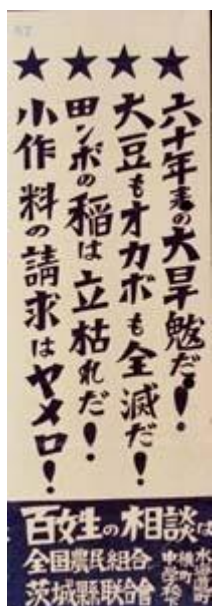 ★六十年来の大旱魃だ！
★大豆もオカボも全滅だ！
★田ンボの稲は立枯れだ！
★小作料の請求はヤメロ！
百姓の相談は
全国農民組合
茨城縣联合會
水海道町
横町
中学校下